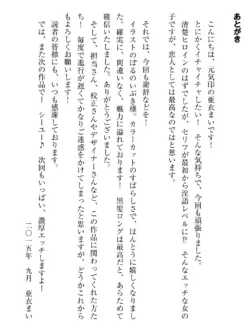 あとがき
こんにちは、元気印の亜衣まいです。
とにかくイチャイチャしたい！　そんな気持ちで、今回も頑張りました。
清楚ヒロインのはずが、セリフが最初から淫語レベルに!?　そんなエッチな女の
子ですが、恋人としては最高なのではと思います。
それでは、今回も謝辞などを！
イラストのぽるのいぶき様。カラーカットのすばらしさで、ほんとうに嬉しくなりまし
た。確実に、間違いなく、魅力に溢れております！　黒髪ロングは最高だと、あらためて
確信いたしました。ありがとうございました。
そして、担当さん、校正さんやデザイナーさんなど、この作品に関わったみなさま
へ！　毎度で進行が遅くてかなりご迷惑をかけてしまったと思いますが、どうかこれから
もよろしくお願いします！
読者の皆様にも、いつも感謝しております。
では、また次の作品で！　シーユー！　次回もいっぱい、濃厚エッチしますよー！
二〇一五年　九月　亜衣まい